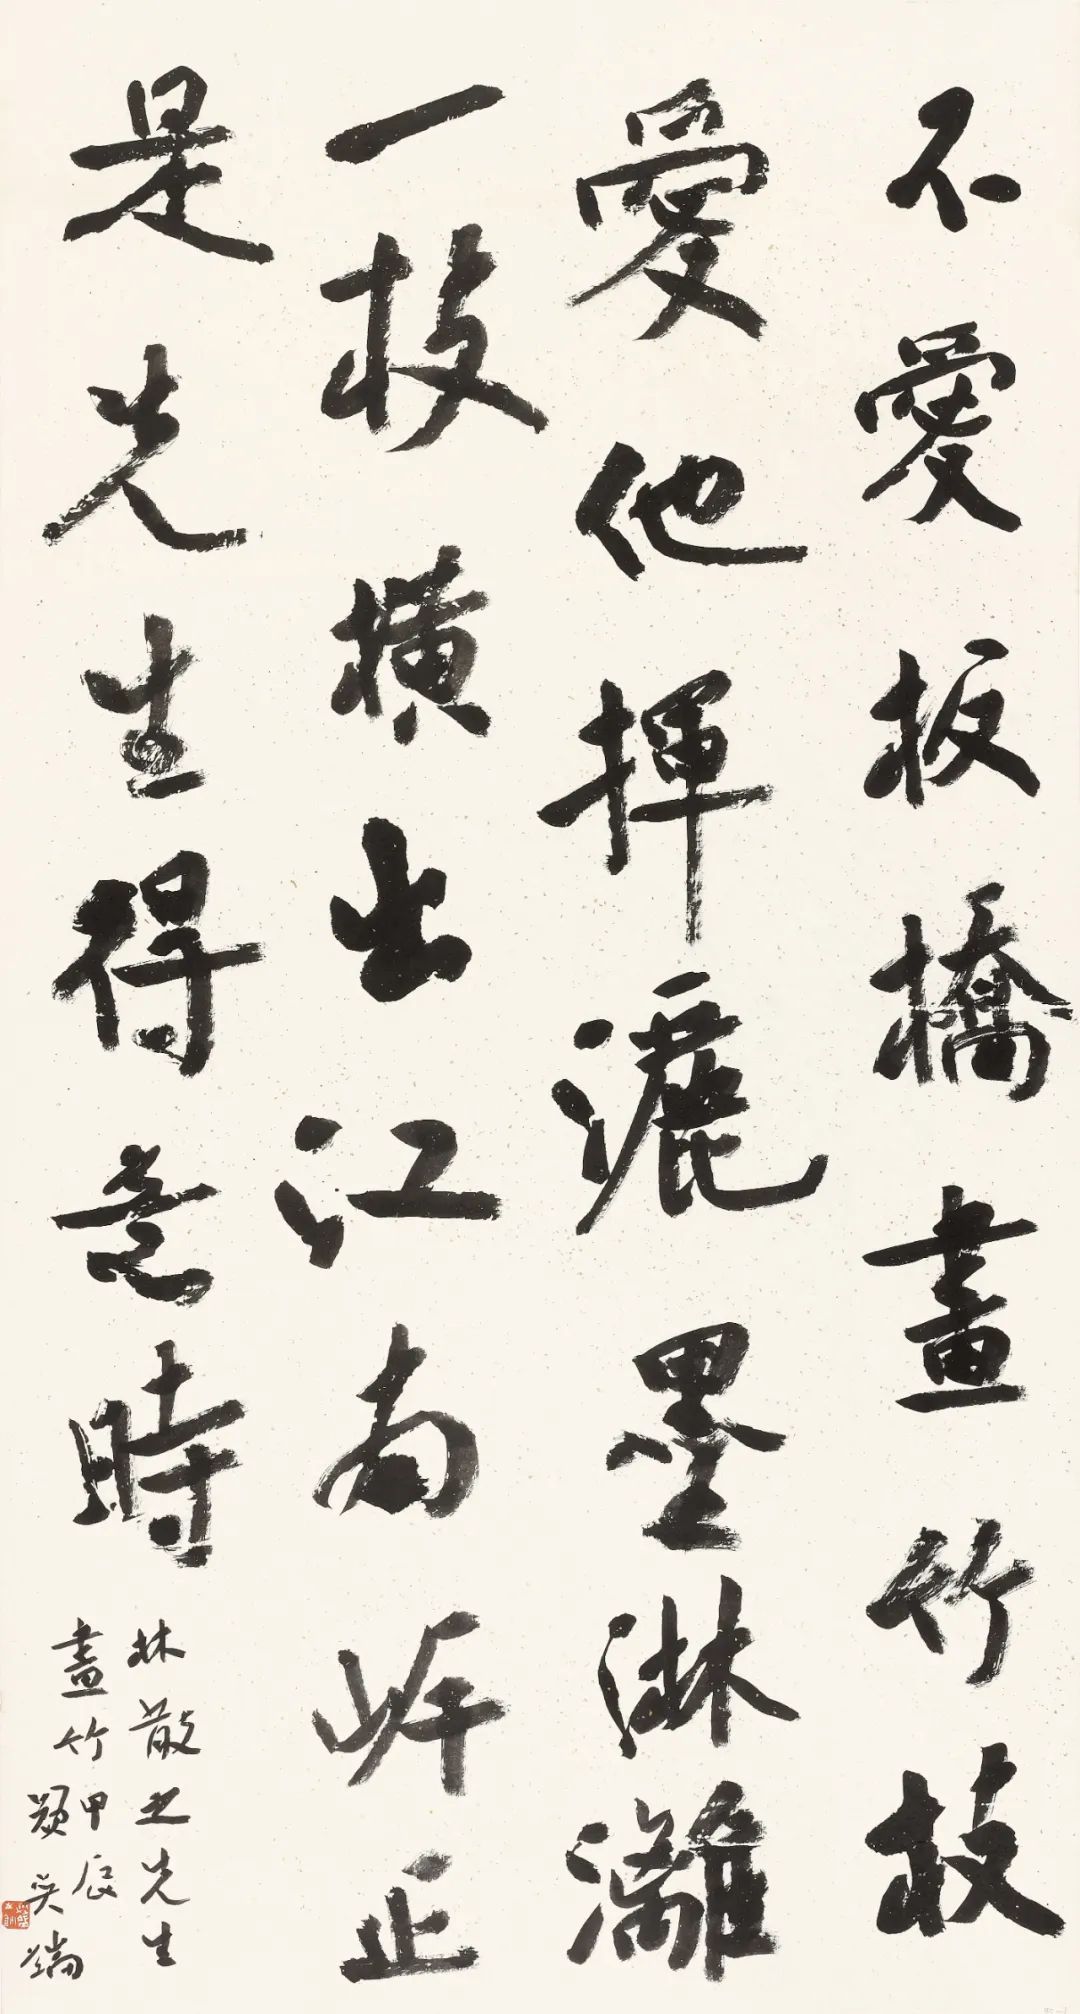 不愛板橋畫竹枝
愛他揮灑墨淋灕
一枝橫出江南岸正
是先生得意時
林散之先生
畫竹甲辰
吴端